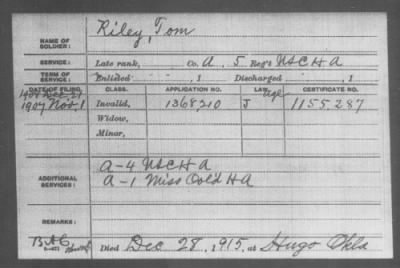 NAME OF SOLDIER: Riley, Tom
SERVICE: Late rank, Co. A, 5 Reg't USCHA
TERM OF SERVICE: Enlisted , 1 Discharged , 1
DATE OF FILING. CLASS. APPLICATION NO. LAW. CERTIFICATE NO.
1907 Nov. 1 Invalid, 1368210 J 1155287
Widow,
Minor,
ADDITIONAL SERVICES: A-4 USCHA
A-1 Miss Cold HA
REMARKS:
Died Dec 28, 1915, at Hugo Okla